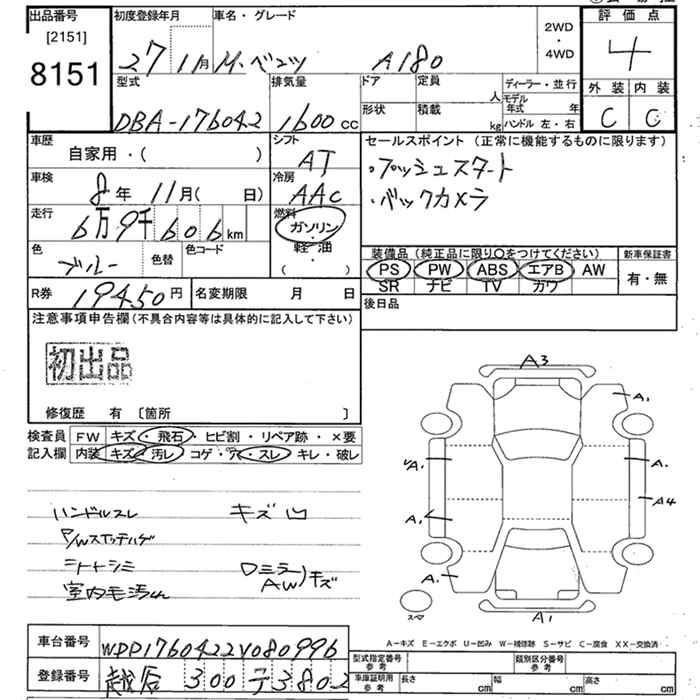 出品番号
[2151]
8151
初度登録年月
27 11月
車名・グレード
M.ベンツ A180
2WD
・
4WD
評価点
4
外装 内装
C C
型式
DBA-176042
排気量
1600 cc
ドア
形状
定員
人
積載
kg
ディーラー・並行
モデル年式 年
ハンドル 左・右
車歴
自家用・( )
シフト
AT
車検
8年 11月( 日)
冷房
AAC
走行
6万9千606km
燃料
ガソリン
・
軽油
( )
色
ブルー
色替
色コード
R券
19450円
名変期限 月 日
セールスポイント(正常に機能するものに限ります)
・プッシュスタート
・バックカメラ
装備品(純正品に限り○をつけてください)
PS PW ABS エアB AW
SR ナビ TV カワ
新車保証書
有・無
後日品
注意事項申告欄(不具合内容等は具体的に記入して下さい)
初出品
修復歴 有 〔箇所 〕
検査員記入欄
FW キズ・飛石・ヒビ割・リペア跡・×要
内装 キズ・汚レ・コゲ・穴・スレ・キレ・破レ
ハンドルスレ キズ凹
P/Wスイッチハゲ
シートシミ Dミラー
AW)キズ
室内毛汚れ
A3
A1
A1
A1
A4
A1
A1
A1
スマ
A-キズ E-エクボ U-凹み W-補修跡 S-サビ C-腐食 XX-交換済
車台番号
WDD1760422V080996
登録番号
越谷 300 テ 3802
型式指定番号
参考
類別区分番号
参考
車庫証明用
参考
長さ cm
幅 cm
高さ cm